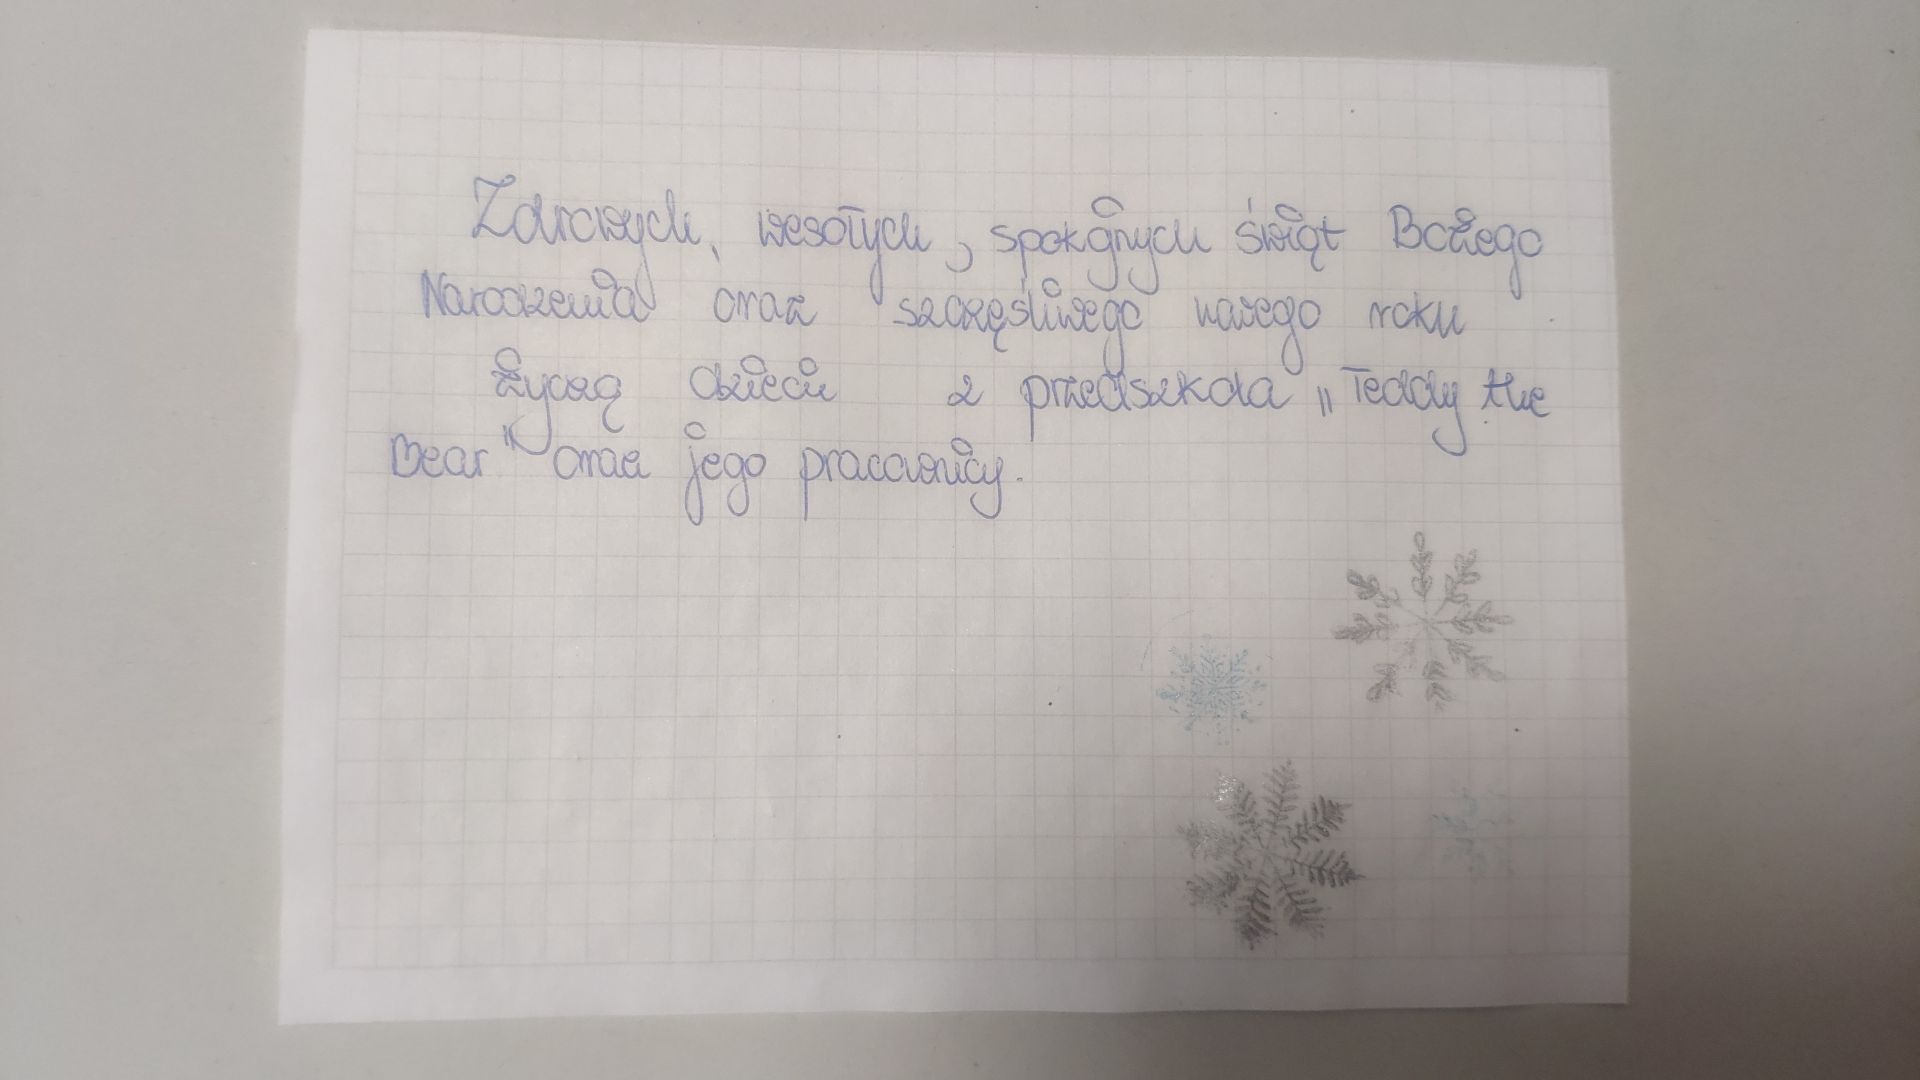 Zdrowych, wesołych, spokojnych świąt Bożego
Narodzenia oraz szczęśliwego nowego roku
życzą dzieci z przedszkola „Teddy the
Bear" oraz jego pracownicy.